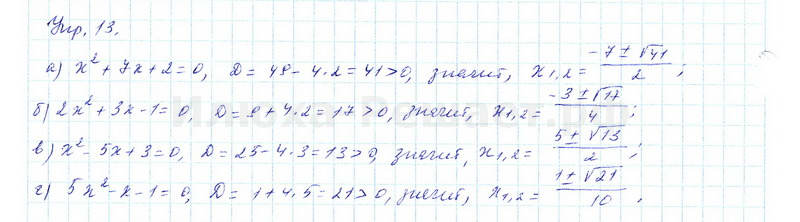 Упр. 13.
а) x² + 7x + 2 = 0, D = 49 - 4·2 = 41 > 0, значит, x₁,₂ = (-7 ± √41)/2;
б) 2x² + 3x - 1 = 0, D = 9 + 4·2 = 17 > 0, значит, x₁,₂ = (-3 ± √17)/4;
в) x² - 5x + 3 = 0, D = 25 - 4·3 = 13 > 0, значит, x₁,₂ = (5 ± √13)/2;
г) 5x² - x - 1 = 0, D = 1 + 4·5 = 21 > 0, значит, x₁,₂ = (1 ± √21)/10